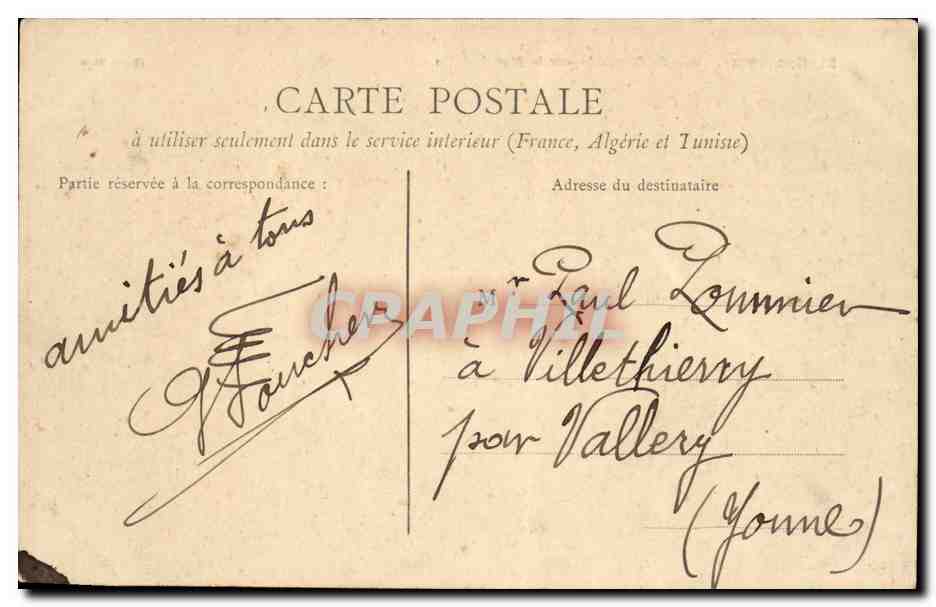 CARTE POSTALE
à utiliser seulement dans le service interieur (France, Algérie et Tunisie)
Partie réservée à la correspondance :
amitiés à tous
Foucher
Adresse du destinataire
Mr Paul
à Villethierry
par Vallery
(Yonne)
CPAPHIL